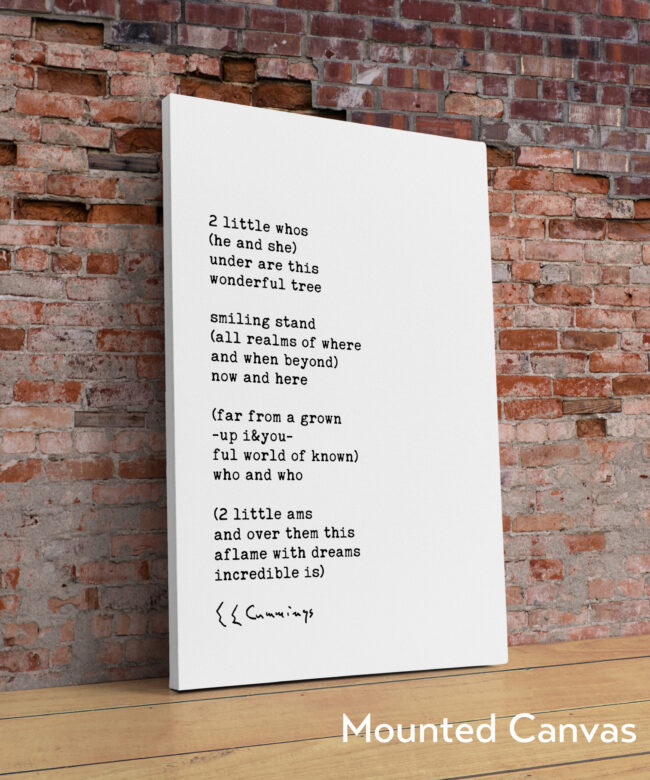 2 little whos
(he and she)
under are this
wonderful tree
smiling stand
(all realms of where
and when beyond)
now and here
(far from a grown
-up i&you-
ful world of known)
who and who
(2 little ams
and over them this
aflame with dreams
incredible is)
E E Cummings
Mounted Canvas